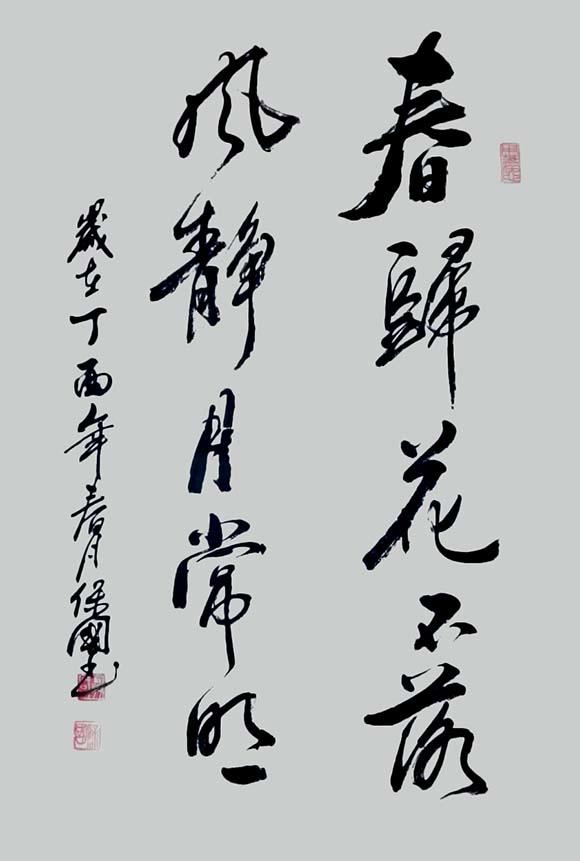 春歸花不落
風静月常明
歲在丁酉年春月保國書